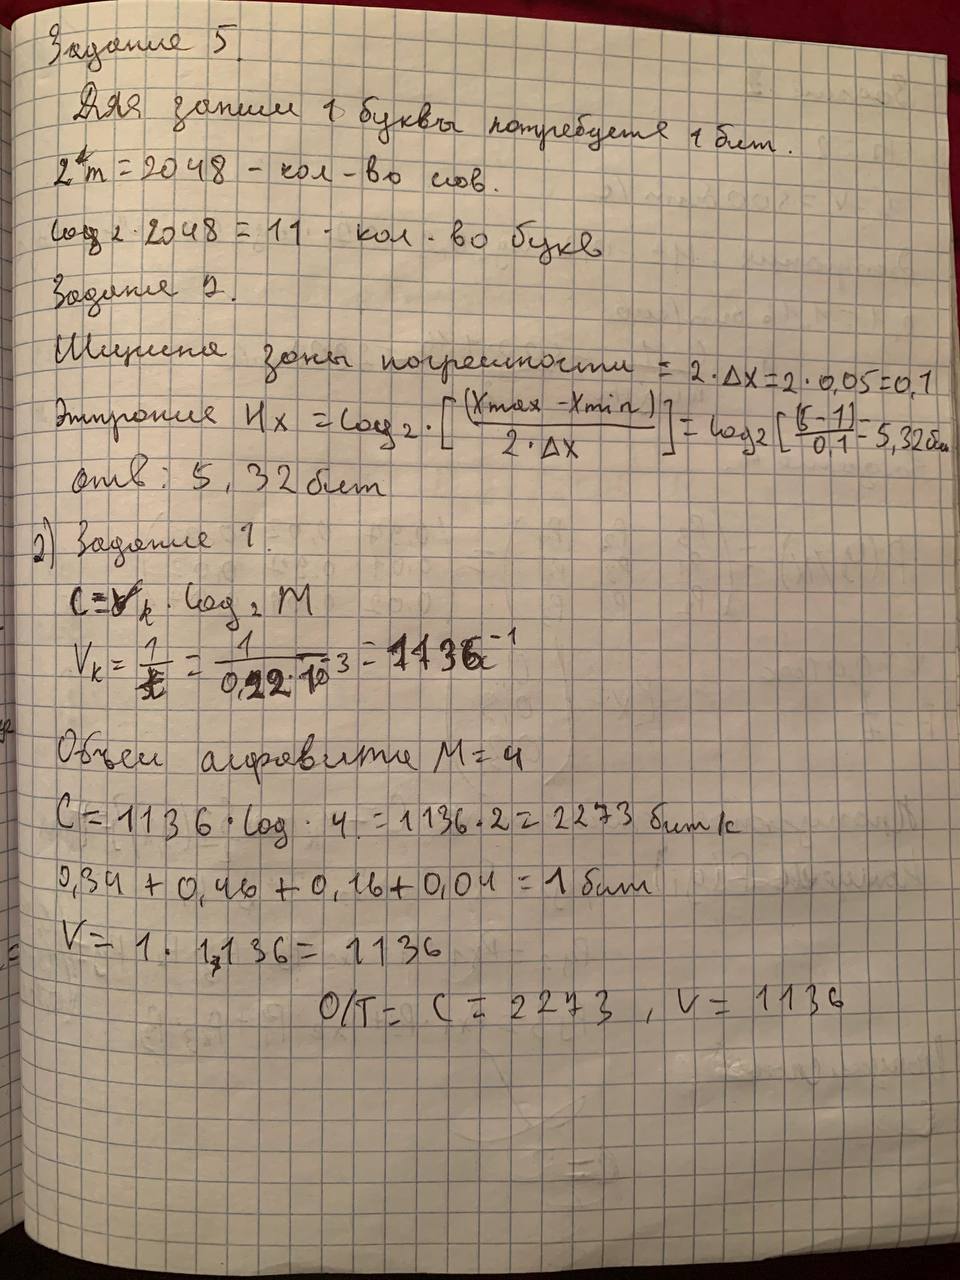 Задание 5.
Для записи 1 буквы потребуется 1 бит.
2^m = 2048 - кол-во слов.
log₂ · 2048 = 11 - кол-во букв
Задание 7.
Ширина зоны погрешности = 2·ΔX = 2·0,05 = 0,1
Энтропия Hx = log₂·[(Xmax - Xmin)/(2·ΔX)] = log₂[(5-1)/0,1 = 5,32 бит
отв: 5,32 бит
2) Задание 1.
C = Vk · log₂ M
Vk = 1/ = 1/ = 1136 c⁻¹
Объем алфавита M = 4
C = 1136 · log · 4 = 1136·2 = 2273 бит/с
0,34 + 0,46 + 0,16 + 0,04 = 1 бит
V = 1 · 1136 = 1136
О/Т = C = 2273, V = 1136